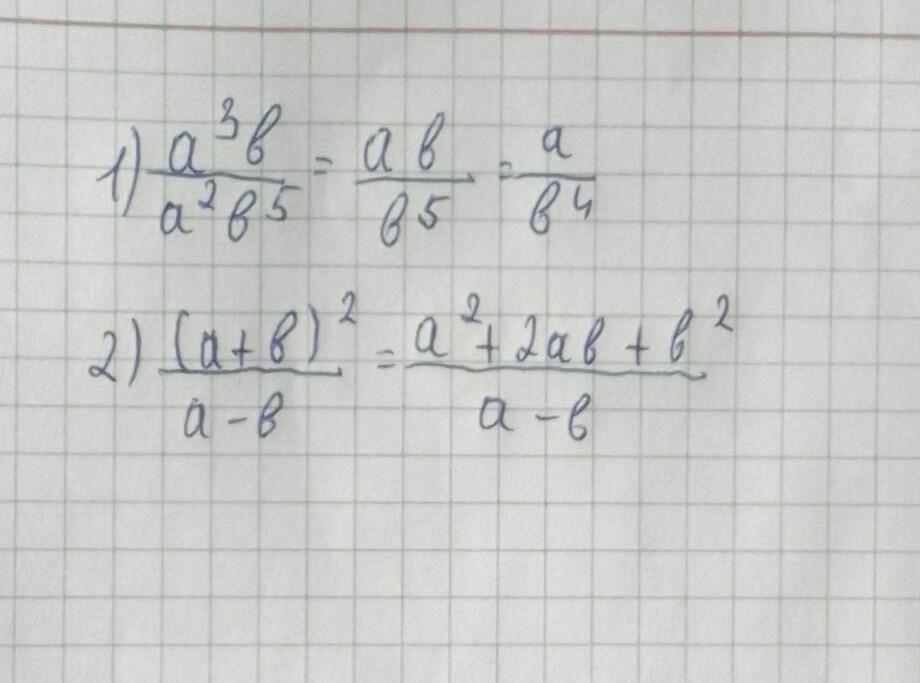 1) a³b/a²b⁵ = ab/b⁵ = a/b⁴
2) (a+b)²/a-b = a²+2ab+b²/a-b